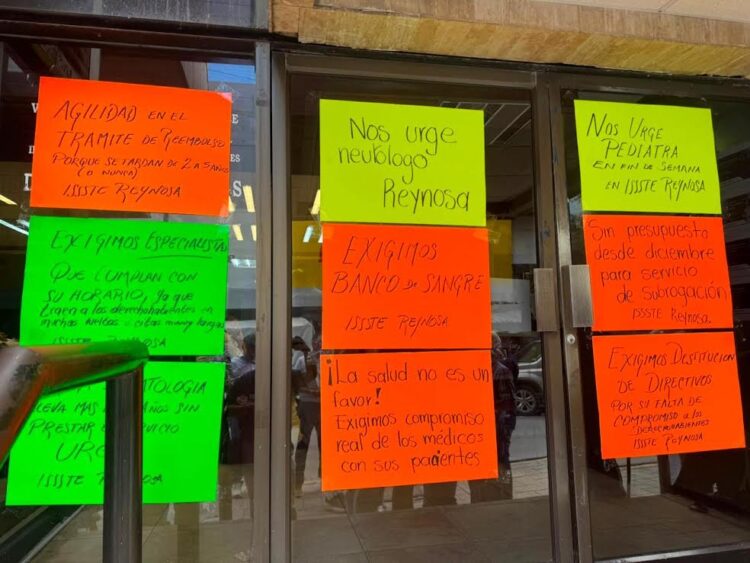 AGILIDAD EN EL
TRAMITE DE REEMBOLSO
PORQUE SE TARDAN DE 2 A 5 AÑOS
(O NUNCA)
ISSSTE REYNOSA
EXIGIMOS ESPECIALISTAS
QUE CUMPLAN CON
SU HORARIO, ya que
traen a los derechohabientes en
muchas vueltas o citas muy largas
ISSSTE REYNOSA
MATOLOGIA
LLEVA MAS AÑOS SIN
PRESTAR SERVICIO
URGE
ISSSTE REYNOSA
Nos urge
neutólogo
Reynosa
EXIGIMOS
BANCO DE SANGRE
ISSSTE REYNOSA
¡La salud no es un
favor!
Exigimos compromiso
real de los médicos
con sus pacientes
NOS URGE
PEDIATRA
EN FIN DE SEMANA
EN ISSSTE REYNOSA
Sin presupuesto
desde diciembre
para servicio
de subrogación
ISSSTE Reynosa.
EXIGIMOS DESTITUCIÓN
DE DIRECTIVOS
POR SU FALTA DE
COMPROMISO A LOS
DERECHOHABIENTES
ISSSTE REYNOSA